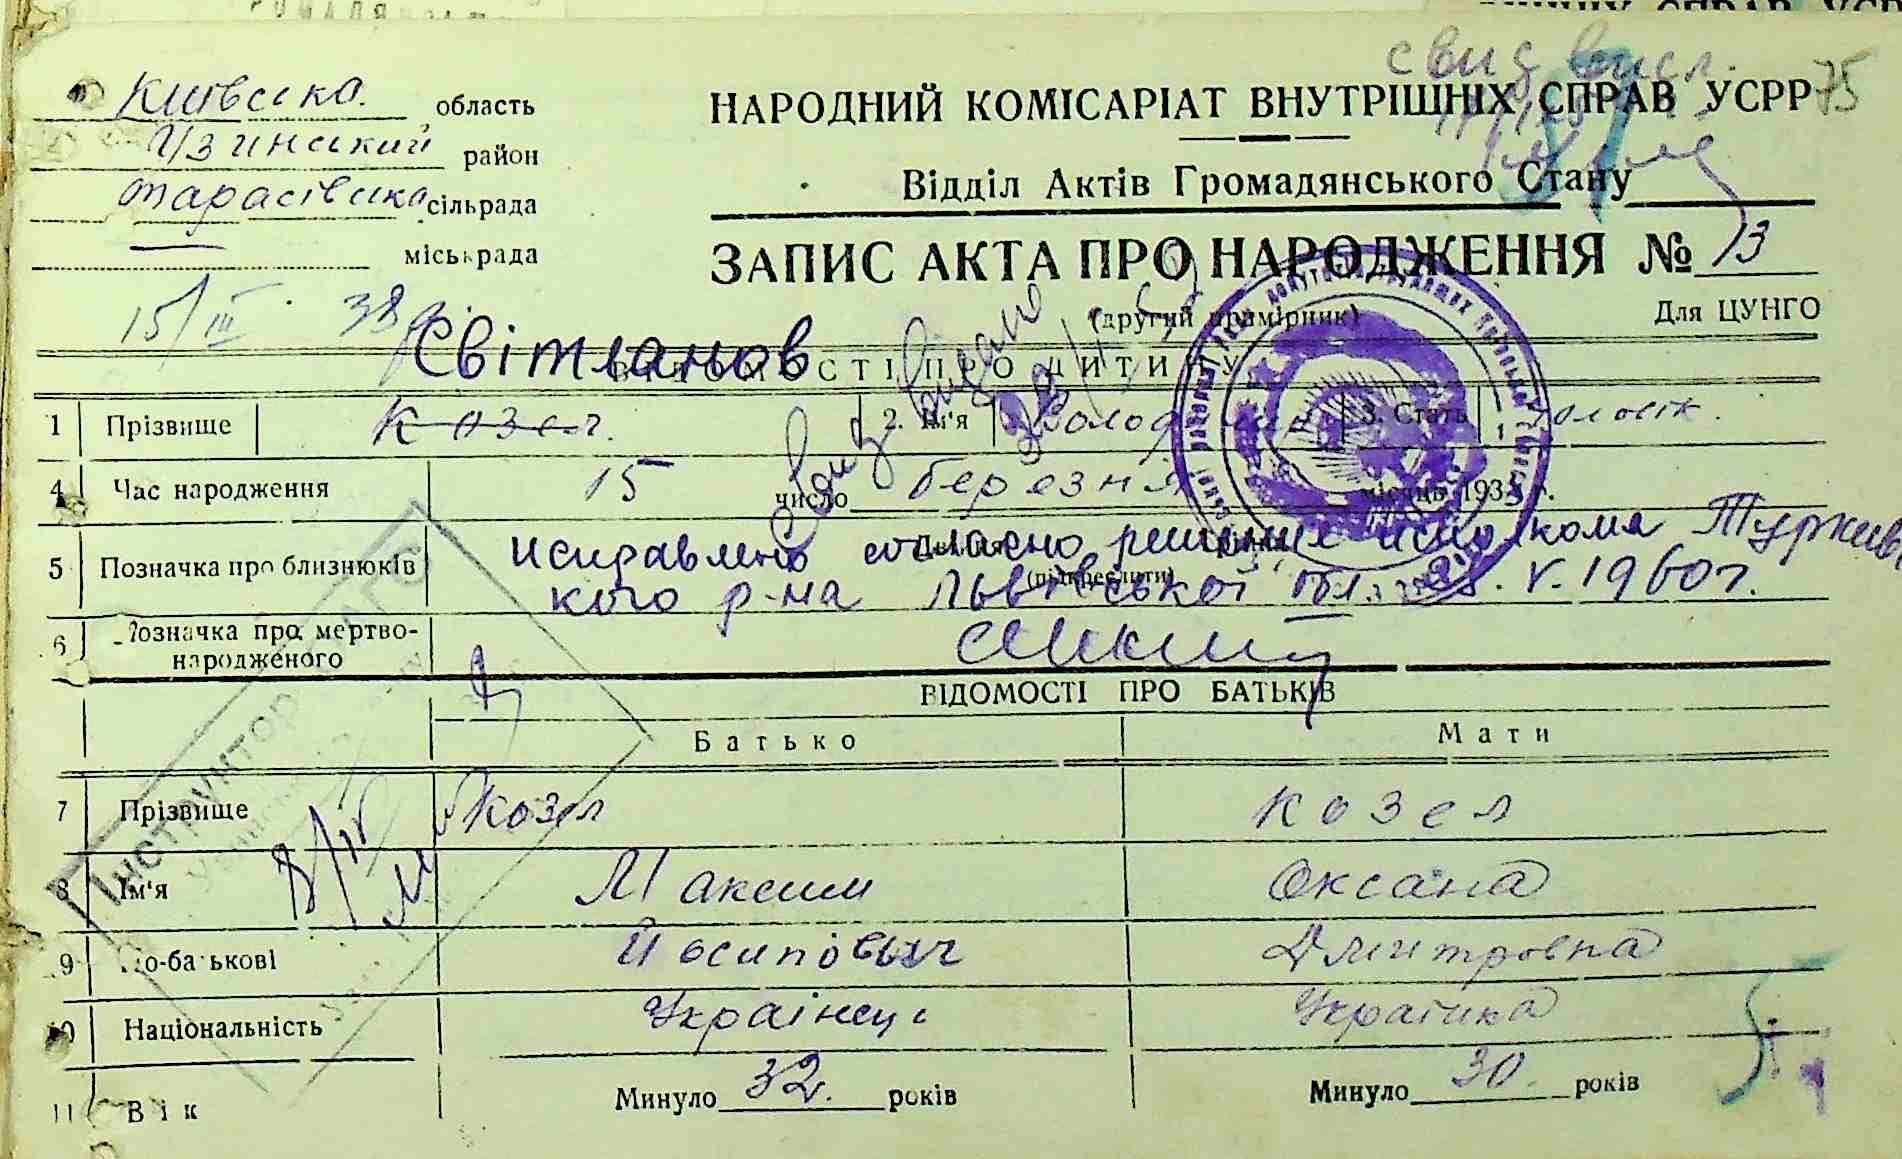 Київська область
Узинський район
Тарасівська сільрада
міськрада
НАРОДНИЙ КОМІСАРІАТ ВНУТРІШНІХ СПРАВ УСРР
75
Відділ Актів Громадянського Стану
ЗАПИС АКТА ПРО НАРОДЖЕННЯ № 13
(другий примірник)
Для ЦУНГО
15/III 33 р.
Світланов
ВІДОМОСТІ ПРО ДИТИНУ
1 Прізвище Козел. 2. Ім'я Володимир 3. Стать чоловік.
4 Час народження 15 число березня місяць 193 г.
5 Позначка про близнюків
исправлено согласно решения исполкома Турків
кого р-на Львівської обл. V. 1960г.
(підкреслити)
6 Позначка про мертво-
народженого
ВІДОМОСТІ ПРО БАТЬКІВ
Батько Мати
7 Прізвище Козел Козел
8 Ім'я Максим Оксана
9 По-батькові Йосипович Дмитровна
10 Національність Українець Українка
11 Вік Минуло 32. років Минуло 30. років
Інструктор ЗАГС